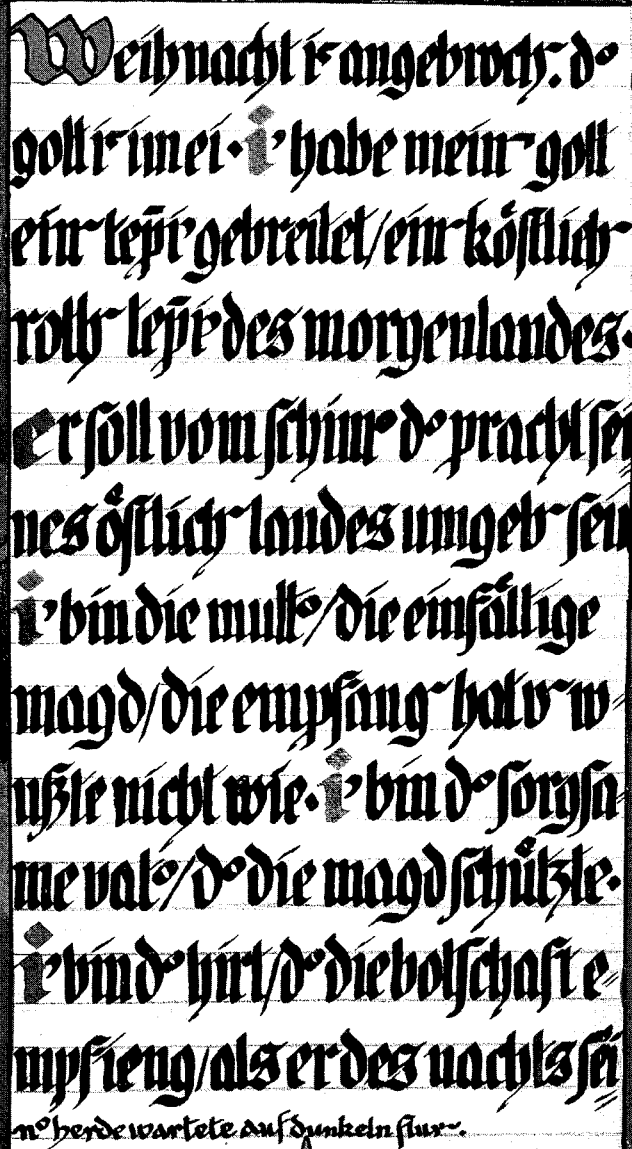 Weihnacht iſ angebroch̄. d°
gott iſ im ei · i’ habe mein‾ gott
ein‾ tep̄i’ gebreitet/ein‾ köſtlich‾
roth‾ tep̄i’ des morgenlandes·
er ſoll vom ſchim° d° pracht ſei
nes öſtlich‾ landes umgeb‾ ſein
i’ bin die mutt°/die einfältige
magd/die empfang‾ hat v‾ w
ußte nicht wie· i’ bin d° ſorgſa
me vat°/d° die magd ſchützte·
i’ bin d° hirt/d° die botſchaft e
mpfieng/als er des nachts ſei
n° herde wartete auf dunkeln flur‾.